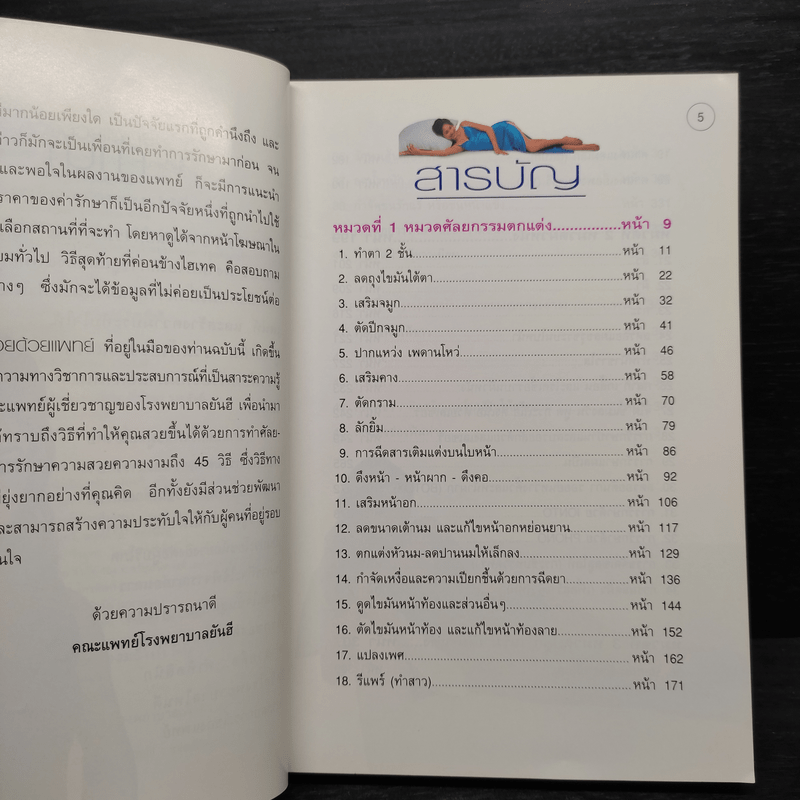 มากน้อยเพียงใด เป็นปัจจัยแรกที่ถูกคำนึงถึง และ
าวก็มักจะเป็นเพื่อนที่เคยทำการรักษามาก่อน จน
และพอใจในผลงานของแพทย์ ก็จะมีการแนะนำ
ราคาของค่ารักษาก็เป็นอีกปัจจัยหนึ่งที่ถูกนำไปใช้
เลือกสถานที่ที่จะทำ โดยหาดูได้จากหน้าโฆษณาใน
ยมทั่วไป วิธีสุดท้ายที่ค่อนข้างไฮเทค คือสอบถาม
างๆ ซึ่งมักจะได้ข้อมูลที่ไม่ค่อยเป็นประโยชน์ต่อ
วยด้วยแพทย์ ที่อยู่ในมือของท่านฉบับนี้ เกิดขึ้น
ความทางวิชาการและประสบการณ์ที่เป็นสาระความรู้
ะแพทย์ผู้เชี่ยวชาญของโรงพยาบาลยันฮี เพื่อนำมา
ทราบถึงวิธีที่ทำให้คุณสวยขึ้นได้ด้วยการทำศัลย-
ารรักษาความสวยความงามถึง 45 วิธี ซึ่งวิธีทาง
ยุ่งยากอย่างที่คุณคิด อีกทั้งยังมีส่วนช่วยพัฒนา
ละสามารถสร้างความประทับใจให้กับผู้คนที่อยู่รอบ
นใจ
ด้วยความปรารถนาดี
คณะแพทย์โรงพยาบาลยันฮี
5
สารบัญ
หมวดที่ 1 หมวดศัลยกรรมตกแต่ง................หน้า 9
1. ทำตา 2 ชั้น................หน้า 11
2. ลดถุงไขมันใต้ตา................หน้า 22
3. เสริมจมูก................หน้า 32
4. ตัดปีกจมูก................หน้า 41
5. ปากแหว่ง เพดานโหว่................หน้า 46
6. เสริมคาง................หน้า 58
7. ตัดกราม................หน้า 70
8. ลักยิ้ม................หน้า 79
9. การฉีดสารเติมแต่งบนใบหน้า................หน้า 86
10. ดึงหน้า - หน้าผาก - ดึงคอ................หน้า 92
11. เสริมหน้าอก................หน้า 106
12. ลดขนาดเต้านม และแก้ไขหน้าอกหย่อนยาน................หน้า 117
13. ตกแต่งหัวนม-ลดปานนมให้เล็กลง................หน้า 129
14. กำจัดเหงื่อและความเปียกชื้นด้วยการฉีดยา................หน้า 136
15. ดูดไขมันหน้าท้องและส่วนอื่นๆ................หน้า 144
16. ตัดไขมันหน้าท้อง และแก้ไขหน้าท้องลาย................หน้า 152
17. แปลงเพศ................หน้า 162
18. รีแพร์ (ทำสาว)................หน้า 171